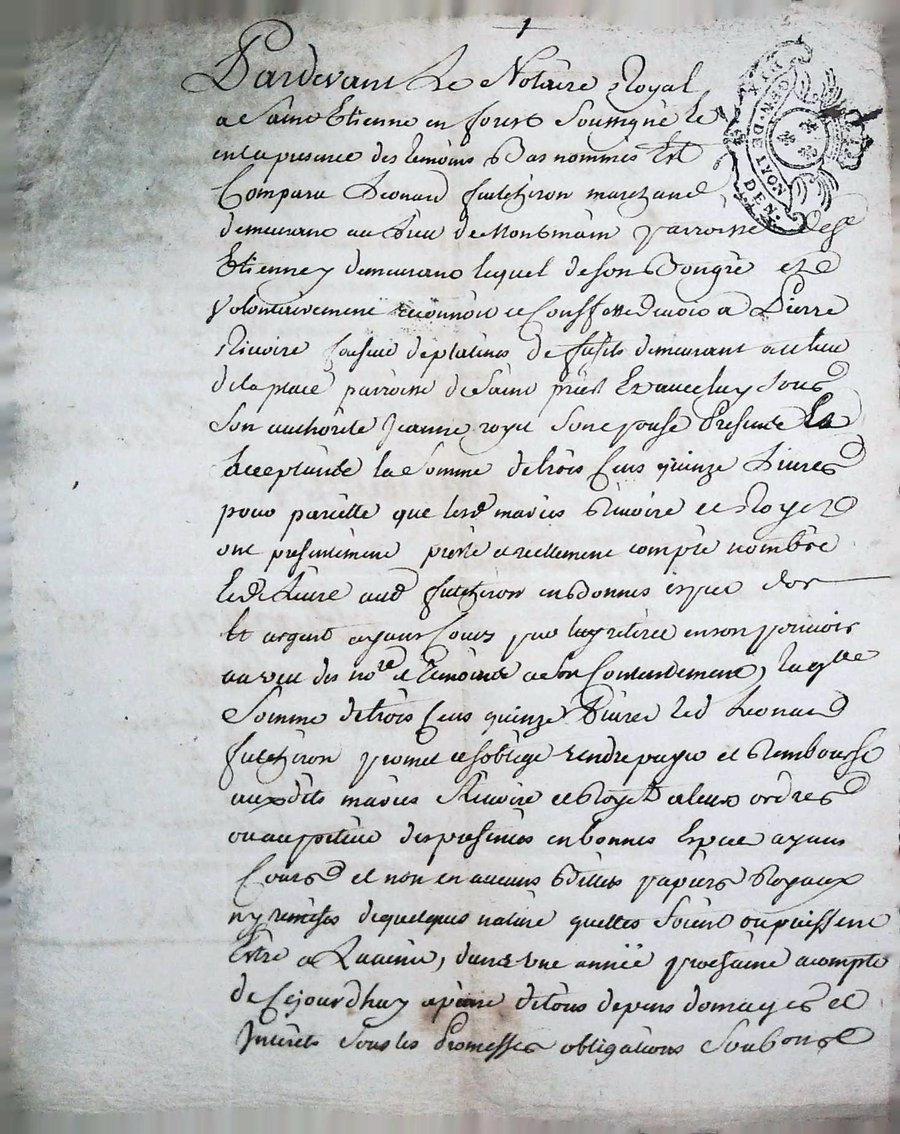 1
Pardevant Le Notaire Royal
GEN. DE LYON
DEN.
a Saint Etienne en forest Soussigné Et
en la presence des temoins Bas nommés Est
Comparu Leonard fulchiron marchand
demeurant au Lieu de Montmain parroisse de St
Etienne y demeurant lequel de son Bongré et
Volontairement reconnoit et Confesse devoir a Pierre
Rivoire faiseur de platines de fusils demeurant au lieu
de la place parroisse de Saint priest Et avec luy sous
Son authorité Jeanne royet Son epouse Presents Et
acceptants la Somme de trois Cens quinze Livres
pour pareille que lesd mariés Rivoire et Royet
ont presentement presté et reellement compté nombré
Et delivré aud fulchiron en bonnes espece dor
Et argent ayant Cours par luy retiree en son pouvoir
au veu des no.re et temoins a son Contentement, laqlle
Somme de trois Cens quinze Livres led Leonard
fulchiron promet et soblige rendre payer et Rembourser
auxdits mariés Rivoire et Royet a leurs ordres
ou au porteur des presentes en bonnes Espece ayant
Cours et non en aucuns Billets papiers Royaux
ny remises de quelques nature quelles Soient ou puissent
Estre a Lavenir, dans une année prochaine a compter
de Cejourdhuy a peine de tous depens domages et
Interets Sous les Promesses obligations Soubmise